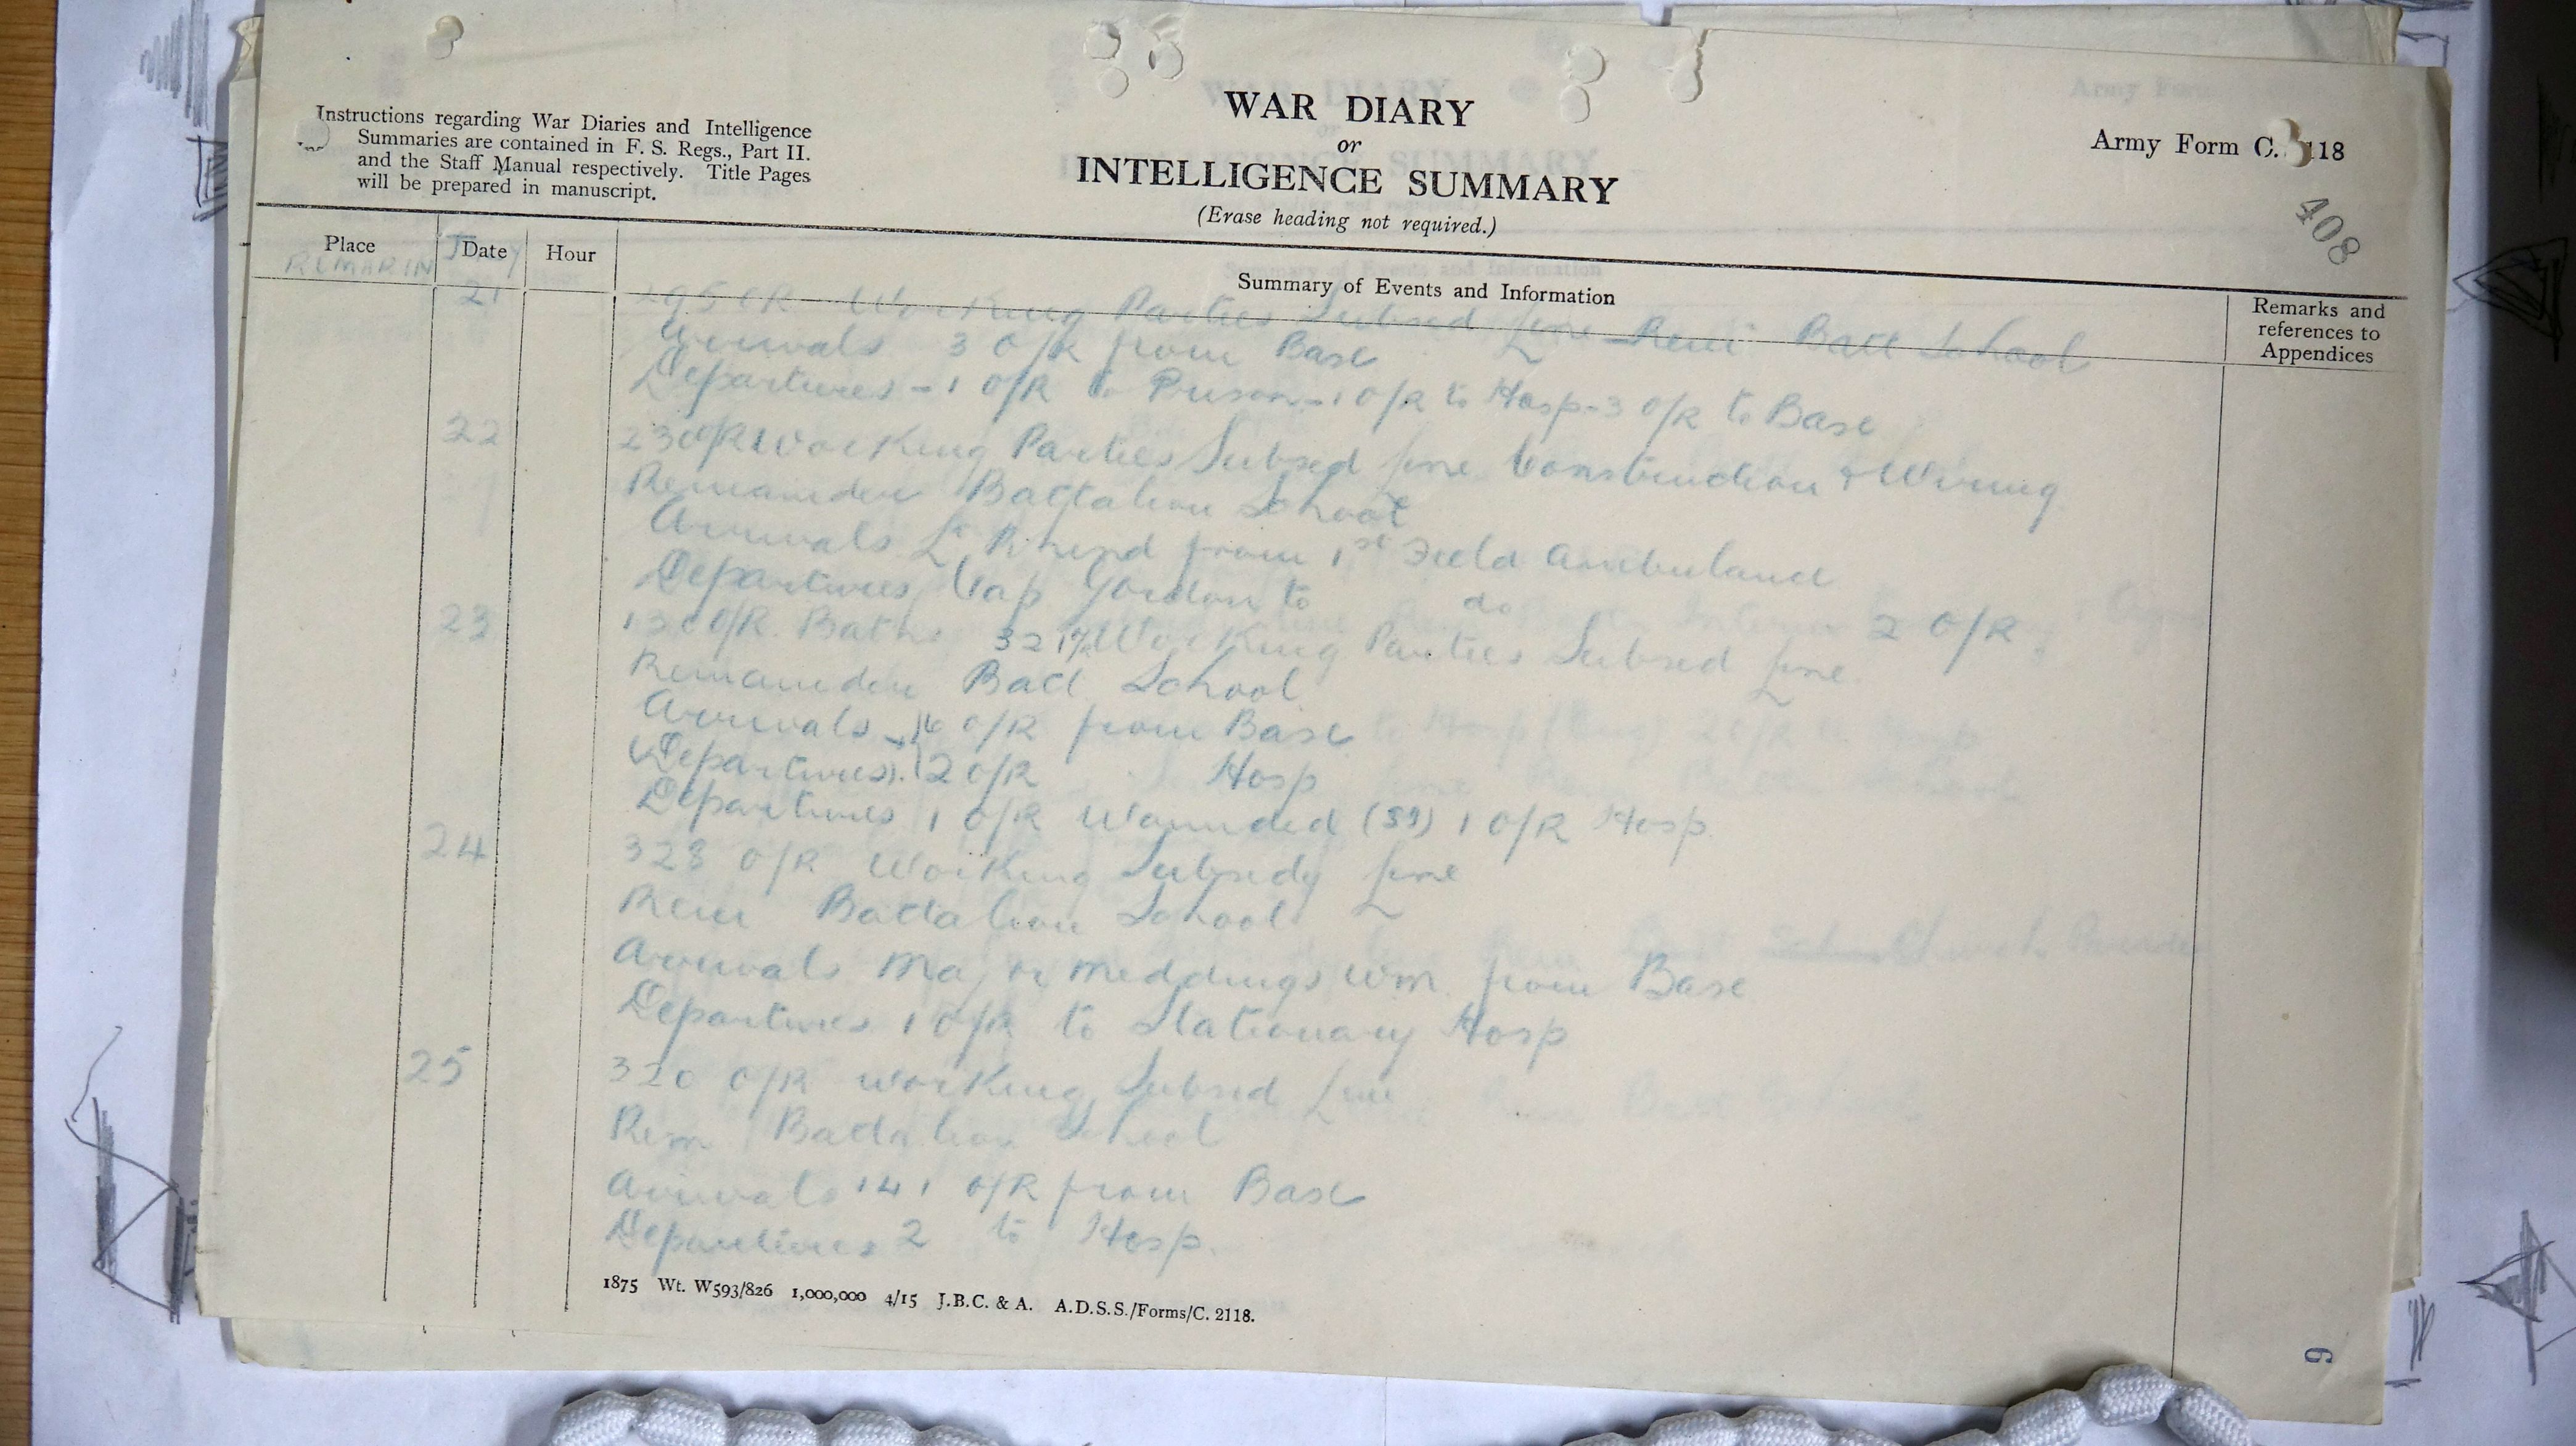 Instructions regarding War Diaries and Intelligence
Summaries are contained in F. S. Regs., Part II.
and the Staff Manual respectively. Title Pages
will be prepared in manuscript.
WAR DIARY
or
INTELLIGENCE SUMMARY
(Erase heading not required.)
Army Form C. 118
408
Place Date Hour
REMARIN
Summary of Events and Information
Remarks and
references to
Appendices
21 O/R Working Parties Subsed Line Rem Batt School
Arrivals 3 O/R from Base
Departures - 1 O/R to Prison - 1 O/R to Hosp - 3 O/R to Base
22 230 O/R Working Parties Subsed Line Construction & Wiring
Remainder Battalion School
Arrivals Lt Rhend from 1st Field Ambulance
Departures Cap Gordon to do 2 O/R
23 O/R Baths 321 Working Parties Subsed Line
Remainder Batt School
Arrivals O/R from Base
Departures 2 O/R Hosp
Departures 1 O/R Wounded 1 O/R Hosp
24 328 O/R Working Subsedy Line
Rem Battalion School
Arrivals Major Meddings Wm. from Base
Departures 1 O/R to Stationary Hosp
25 320 O/R Working Subsed Line
Rem Battalion School
Arrivals 141 O/R from Base
Departures 2 to Hosp.
1875 Wt. W593/826 1,000,000 4/15 J.B.C. & A. A.D.S.S./Forms/C. 2118.